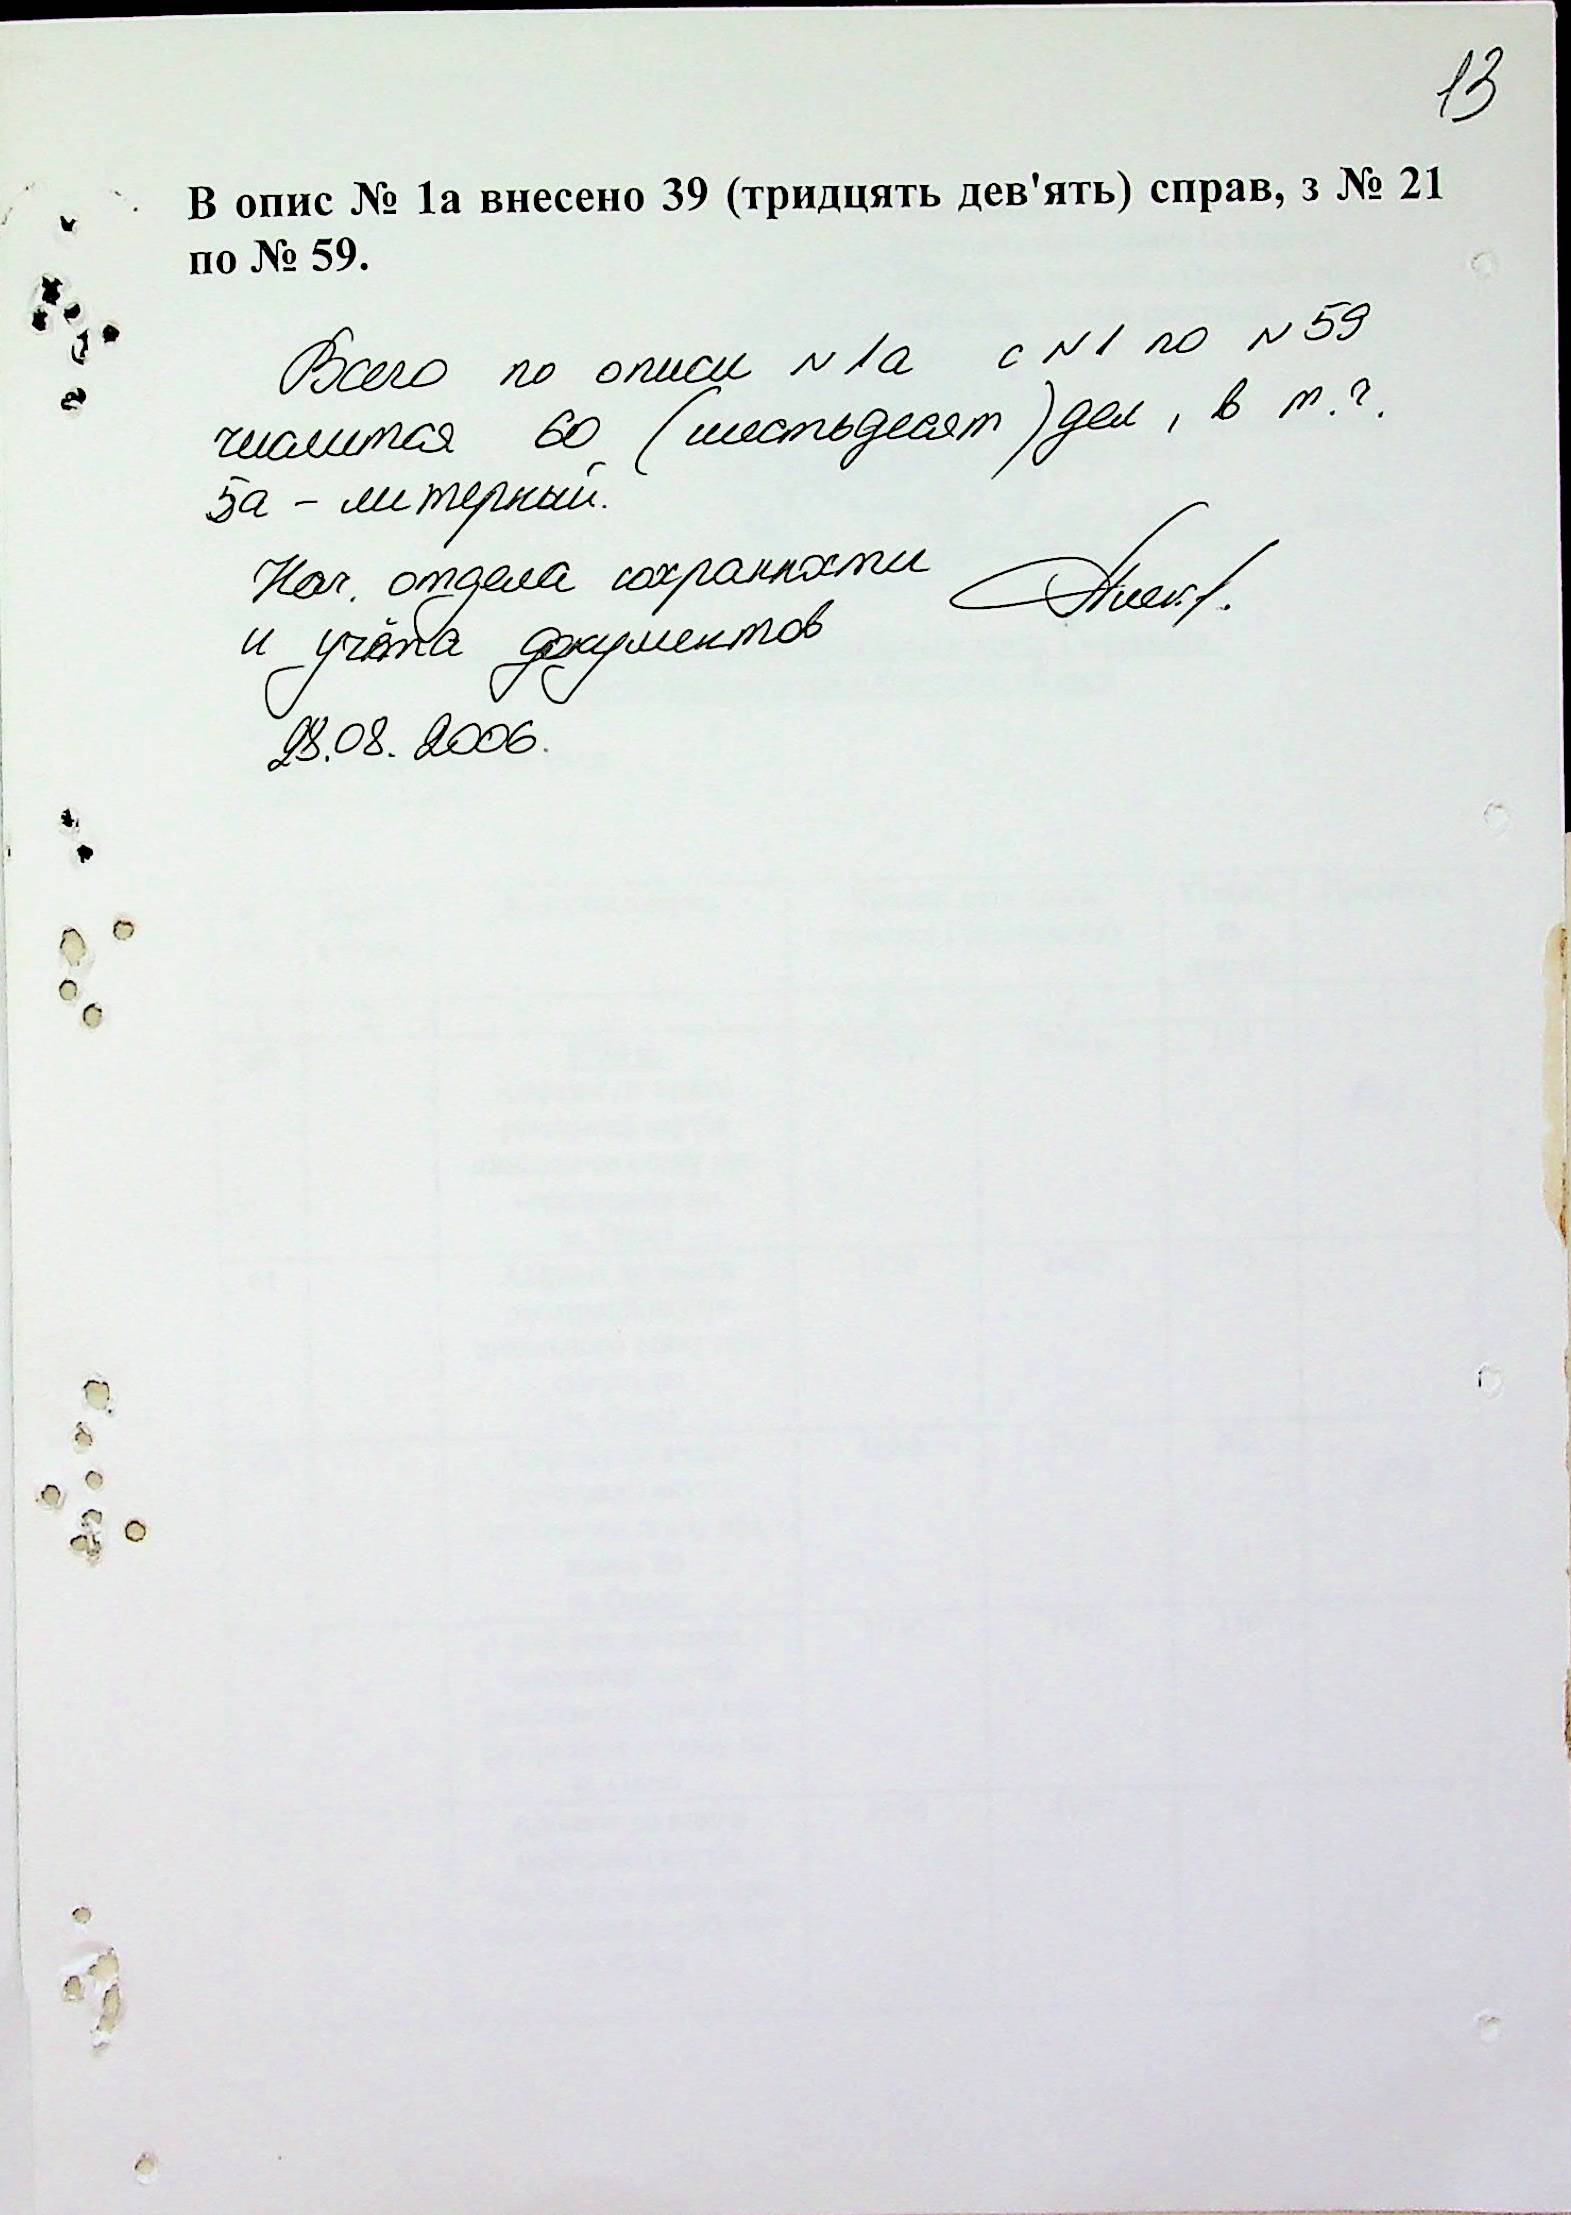 13
В опис № 1а внесено 39 (тридцять дев'ять) справ, з № 21
по № 59.
Всего по описи N 1а с N 1 по N 59
числится 60 (шестьдесят) дел, в т.ч.
5а – литерный.
Нач. отдела сохранности
и учёта документов
28.08.2006.